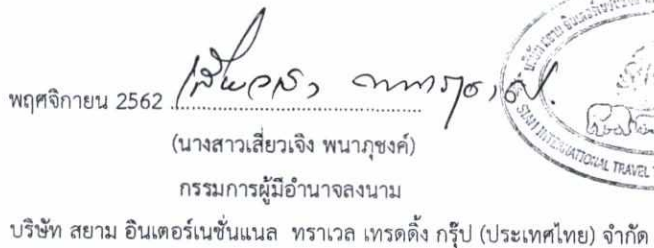 พฤศจิกายน 2562
(นางสาวเสี่ยวเจิง พนาภุชงค์)
กรรมการผู้มีอำนาจลงนาม
บริษัท สยาม อินเตอร์เนชั่นแนล ทราเวล เทรดดิ้ง กรุ๊ป (ประเทศไทย) จำกัด
SIAM INTERNATIONAL TRAVEL